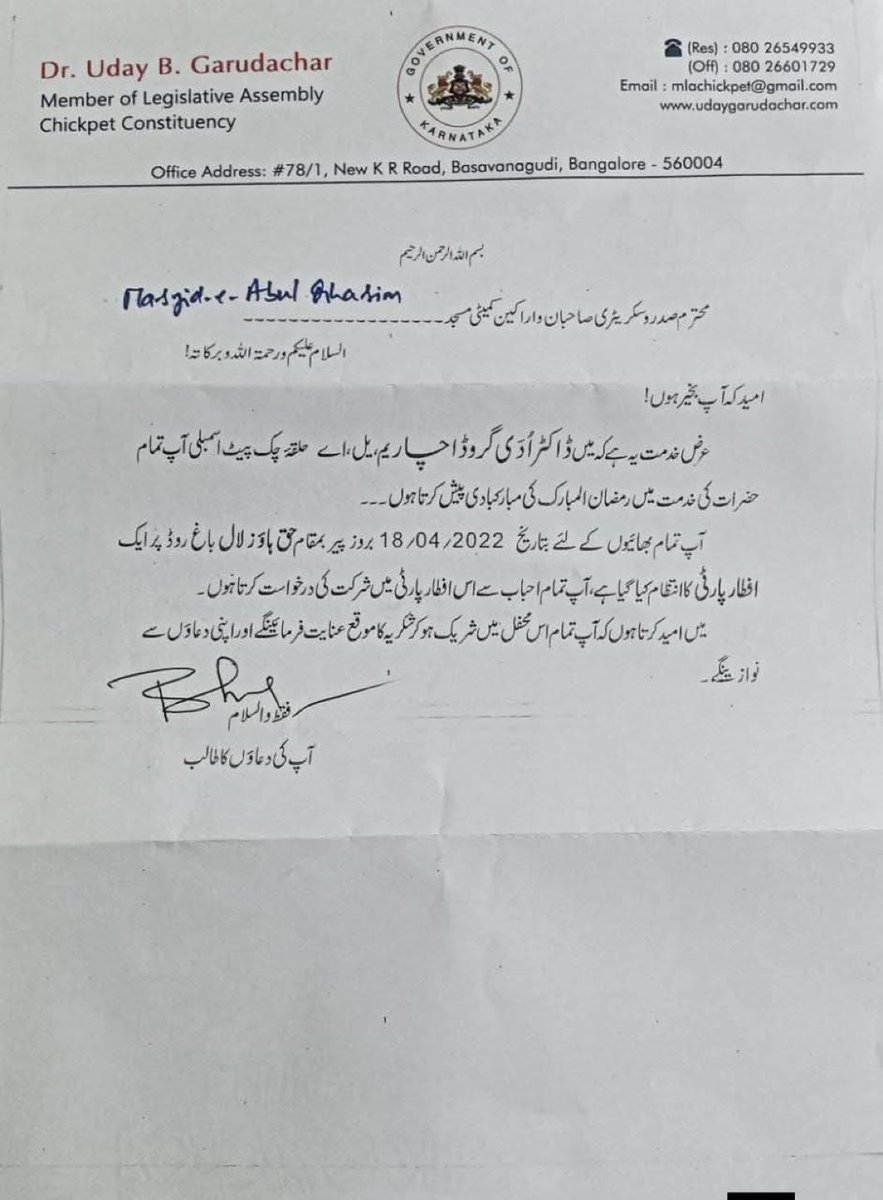 Dr. Uday B. Garudachar
Member of Legislative Assembly
Chickpet Constituency
GOVERNMENT OF
KARNATAKA
(Res) : 080 26549933
(Off) : 080 26601729
Email : mlachickpet@gmail.com
www.udaygarudachar.com
Office Address: #78/1, New K R Road, Basavanagudi, Bangalore - 560004
بسم اللہ الرحمن الرحیم
Masjid-e-Abul Qhasim
محترم صدر و سکریٹری صاحبان و اراکین کمیٹی مسجد ------------------
السلام علیکم ورحمۃ اللہ وبرکاتہ!
امید کہ آپ بخیر ہوں!
عرض خدمت یہ ہے کہ میں ڈاکٹر اُدَی گروڈاچار یم، یل، اے حلقۂ چک پیٹ اسمبلی آپ تمام
حضرات کی خدمت میں رمضان المبارک کی مبارکبادی پیش کرتا ہوں۔۔۔
آپ تمام بھائیوں کے لئے بتاریخ 18/04/2022 بروز پیر بمقام حق ہاؤز لال باغ روڈ پر ایک
افطار پارٹی کا انتظام کیا گیا ہے، آپ تمام احباب سے اس افطار پارٹی میں شرکت کی درخواست کرتا ہوں۔
میں امید کرتا ہوں کہ آپ تمام اس محفل میں شریک ہو کر شکریہ کا موقع عنایت فرمائینگے اور اپنی دعاؤں سے
نوازینگے۔
فقط والسلام
آپ کی دعاؤں کا طالب